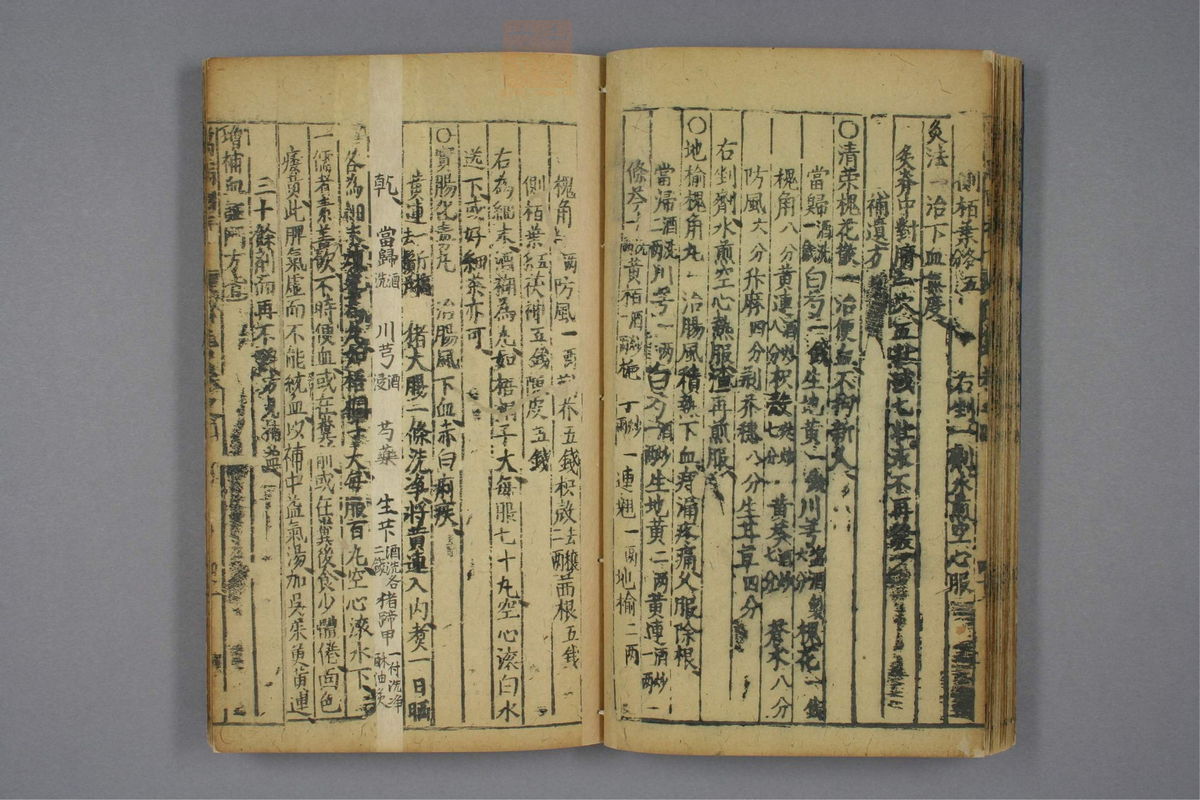 側柏葉 各五 右剉一劑水煎空心服
灸法 治下血無度
灸脊中對臍 五壯或七壯永不再發
補遺方
○清榮槐花飲 治便血不拘新久
當歸酒洗一錢白芍一錢生地黃一錢川芎 槐花一錢
槐角八分黃連酒炒八分枳殼麩炒七分黃芩酒炒七分蒼朮八分
防風六分升麻四分荊芥穗八分生甘草四分
右剉劑水煎空心熱服渣再煎服
○地榆槐角丸 治腸風積熱下血痔漏疼痛久服除根
當歸酒洗二兩川芎一兩白芍酒炒一兩生地黃二兩黃連酒炒一兩
條芩 黃栢酒炒一兩梔子炒一兩連翹一兩地榆二兩
槐角 兩防風一兩 芥五錢枳殼去穰二兩茜根五錢
側栢葉五 茯神五錢陳皮五錢
右為細末酒糊為丸如梧桐子大每服七十丸空心滾白水
送下或好細茶亦可
○實腸化毒丸 治腸風下血赤白痢疾
黃連去 猪大腸一條洗净將黃連入内煮一日晒
乾 當歸酒洗 川芎酒浸 芍藥 生芐酒洗各二錢猪蹄甲一付洗净酥油炙
各為細末 為丸如梧桐子大每服百丸空心滾水下
一儒者素善飲不時便血或在糞前或在糞後食少體倦面色
痿黃此脾氣虛而不能統血以補中益氣湯加吳茱萸黃連
三十餘劑而再不發 方見補益
增補血證門方